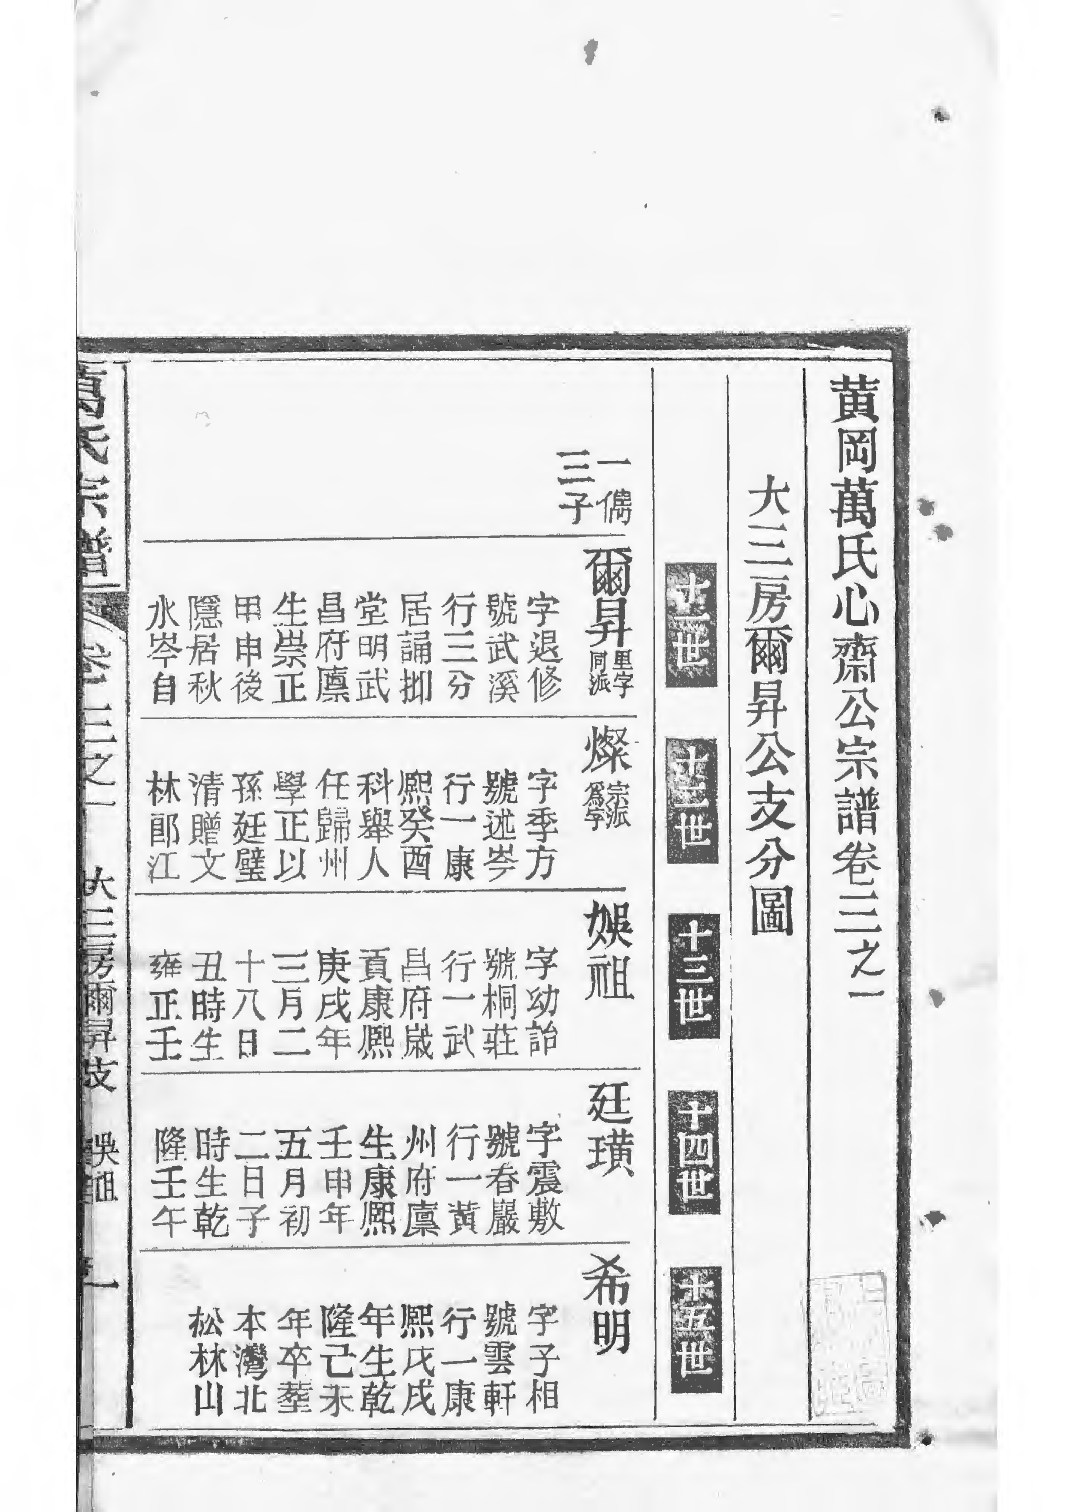 黃岡萬氏心齋公宗譜卷三之一
大三房爾昇公支分圖
十一世
十二世
十三世
十四世
十五世
一儁
三子
爾昇
里字
同派
字退修
號武溪
行三分
居誦抑
堂明武
昌府廪
生崇正
甲申後
隱居秋
水岑自
燦
宗派
爲字
字季方
號述岑
行一康
熙癸酉
科舉人
任歸州
學正以
孫廷璧
清贈文
林郎江
娛祖
字幼詒
號桐莊
行一武
昌府歲
貢康熙
庚戌年
三月二
十八日
丑時生
雍正壬
廷璜
字震敷
號春巖
行一黃
州府廪
生康熙
壬申年
五月初
二日子
時生乾
隆壬午
希明
字子相
號雲軒
行一康
熙戊戌
年生乾
隆己未
年卒塟
本灣北
松林山
萬氏宗譜
卷三之一
大三房爾昇支